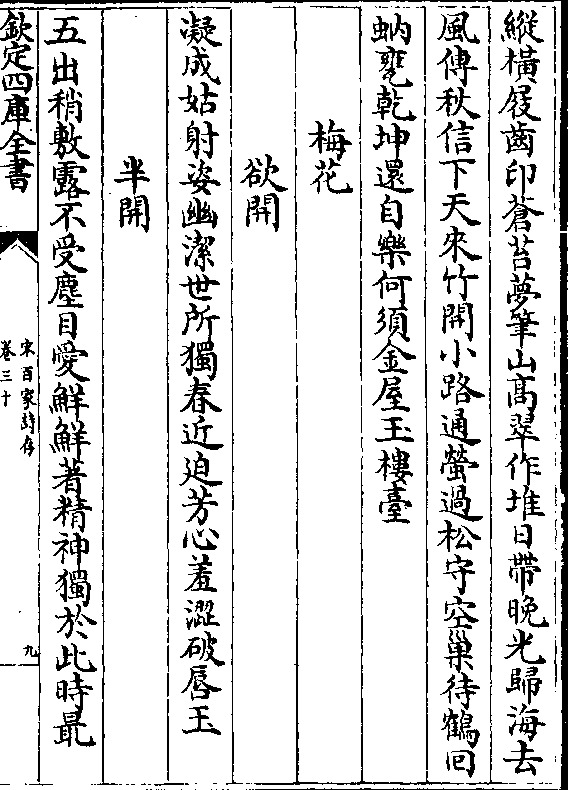 縱橫屐齒印蒼苔夢筆山高翠作堆日帶晚光歸海去
風傳秋信下天來竹開小路通螢過松守空巢待鶴回
蚋甕乾坤還自樂何須金屋玉樓臺
梅花
欲開
凝成姑射姿幽潔世所獨春近迫芳心羞澀破唇玉
半開
五出稍敷露不受塵目愛鮮鮮著精神獨於此時最
欽定四庫全書
宋百家詩存
卷三十
九